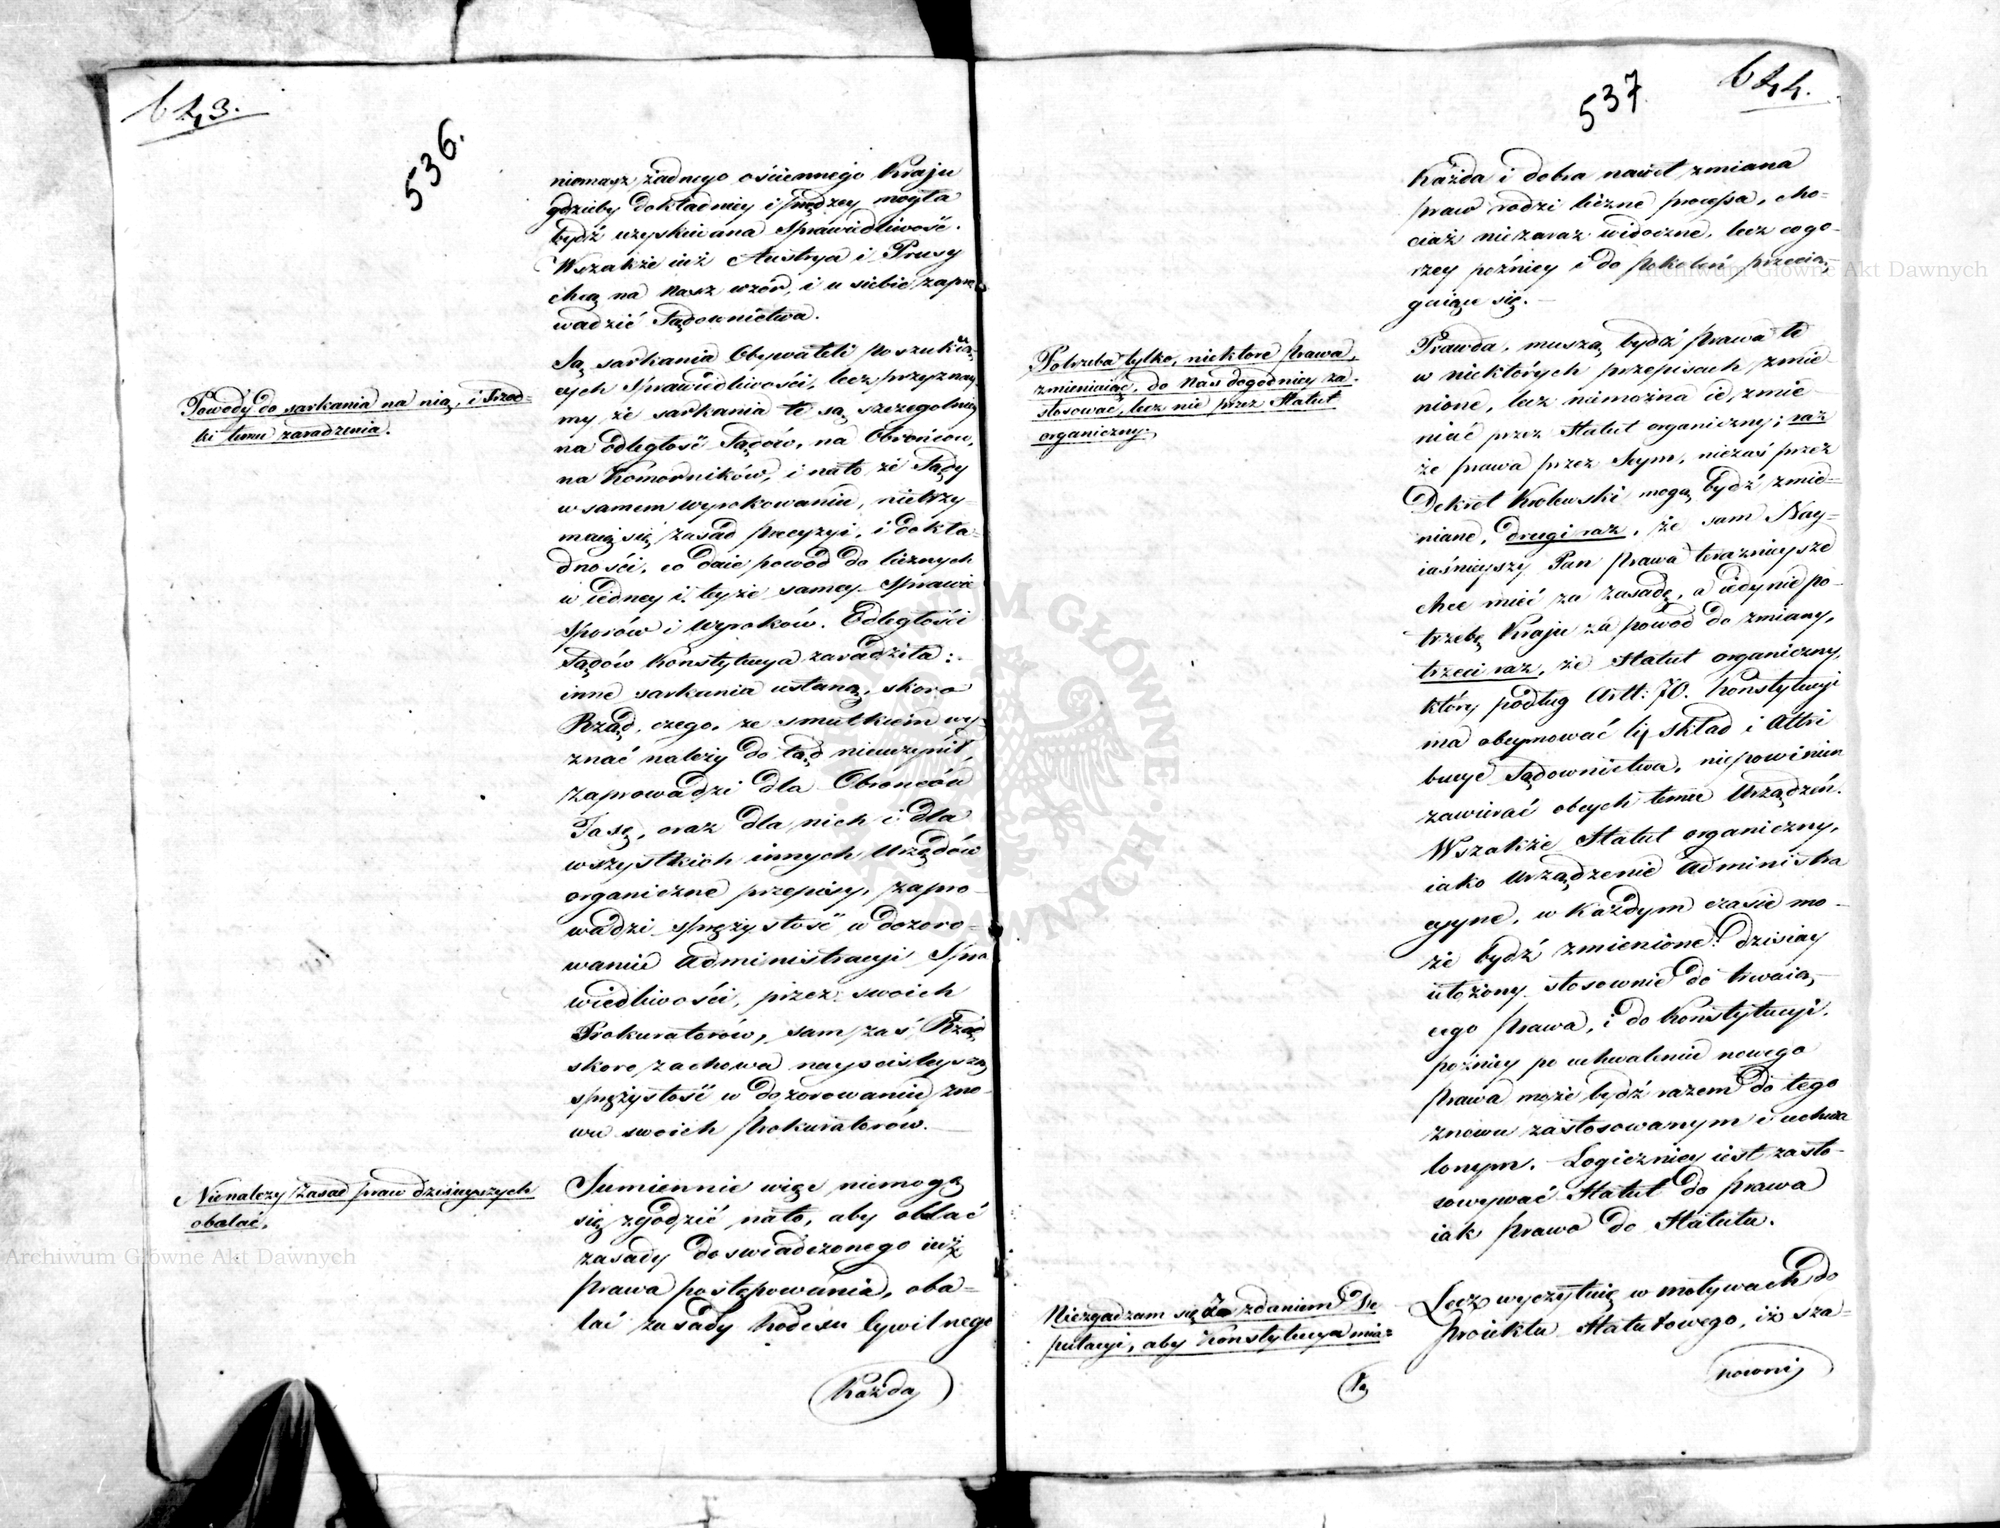 643.
536.
niemasz żadnego ościennego Kraju
gdzieby dokładniey i prędzey mogła
bydź uzyskiwana Sprawiedliwość.
Wszakże iuż Austrya i Prusy
chcą na nasz wzór, i u siebie zapro
wadzić Sądownictwa.
Powody do sarkania na nią, i środ-
ki temu zaradzenia.
Są sarkania Obywateli poszukuią-
cych Sprawiedliwości, lecz przyznay
my że sarkania te są szczególniey
na odległość Sądów, na Obrońców,
na Komorników, i na to że Sądy
w samem wyrokowaniu, nietrzy-
maią się zasad precyzyi, i dokła-
dności, co daie powód do licznych
w iedney i teyże samey Sprawie
Sporów i Wyroków. Odległości
Sądów Konstytucya zaradziła:
inne sarkania ustaną, skoro
Rząd, czego, ze smutkiem wy-
znać należy do tąd nieuczynił,
zaprowadzi dla Obrońców
Taxę, oraz dla nich i dla
wszystkich innych Urzędów
organiczne przepisy, zapro-
wadzi sprężystość w dozoro-
waniu Administracyi Spra
wiedliwości, przez swoich
Prokuratorów, sam zaś Rząd
skoro zachowa nayściśleyszą
sprężystość w dozorowaniu zno-
wu swoich Prokuratorów.
Nienależy zasad praw dzisieyszych
obalać.
Sumiennie więc niemogę
się zgodzić na to, aby obalać
zasady doswiadczonego iuż
prawa postępowania, oba-
lać zasady Kodexu Cywilnego
Każda
Archiwum Główne Akt Dawnych
537
644.
Każda i dobra nawet zmiana
praw rodzi liczne processa, cho-
ciaż niezaraz widoczne, lecz cogo-
rzey poźniey i do pokoleń przecią-
gaiące się.
Archiwum Główne Akt Dawnych
Potrzeba tylko, niektóre prawa,
zmieniaiąc, do nas dogodniey za-
stosować, lecz nie przez Statut
organiczny.
Prawda, muszą bydź prawa te
w niektórych przepisach zmie-
nione, lecz niemożna ie, zmie-
niać przez Statut organiczny; raz
że prawa przez Seym, niezaś przez
Dekret Królewski mogą bydź zmie-
niane, drugi raz, że sam Nay-
iaśnieyszy Pan prawa teraznieysze
chce mieć za zasadę, a iedynie po-
trzebę Kraju za powód do zmiany,
trzeci raz, że Statut organiczny,
który podług Artt: 70. Konstytucyi
ma obeymować tylko skład i Attri
bucye Sądownictwa, niepowinien
zawierać obcych temu Urządzeń.
Wszakże Statut organiczny,
iako urządzenie Administra
cyyne, w każdym czasie mo-
że bydź zmienione: dzisiay
ułożony stosownie do trwaią-
cego prawa, i do Konstytucyi,
poźniey po uchwaleniu nowego
prawa może bydź razem do tego
znowu zastosowanym i uchwa
lonym. Logiczniey iest zasto-
sowywać Statut do prawa
iak prawo do Statutu.
Niezgadzam się ze zdaniem De
putacyi, aby Konstytucya miaz
Lecz wyczytuię w motywach do
Proiektu Statutowego, iż sza-
nowni
ARCHIWUM GŁÓWNE AKT DAWNYCH